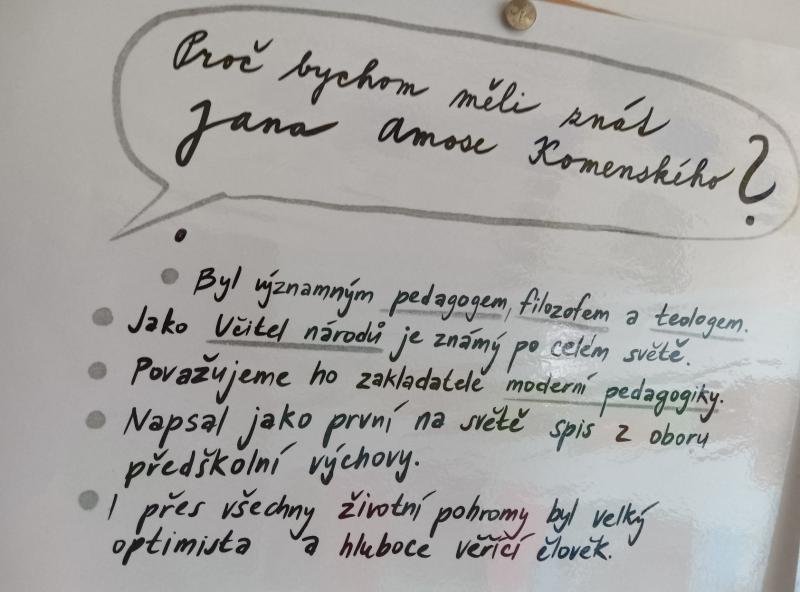 Proč bychom měli znát
Jana Amose Komenského?
Byl významným pedagogem, filozofem a teologem.
Jako Učitel národů je známý po celém světě.
Považujeme ho zakladatele moderní pedagogiky.
Napsal jako první na světě spis z oboru
předškolní výchovy.
I přes všechny životní pohromy byl velký
optimista a hluboce věřící člověk.